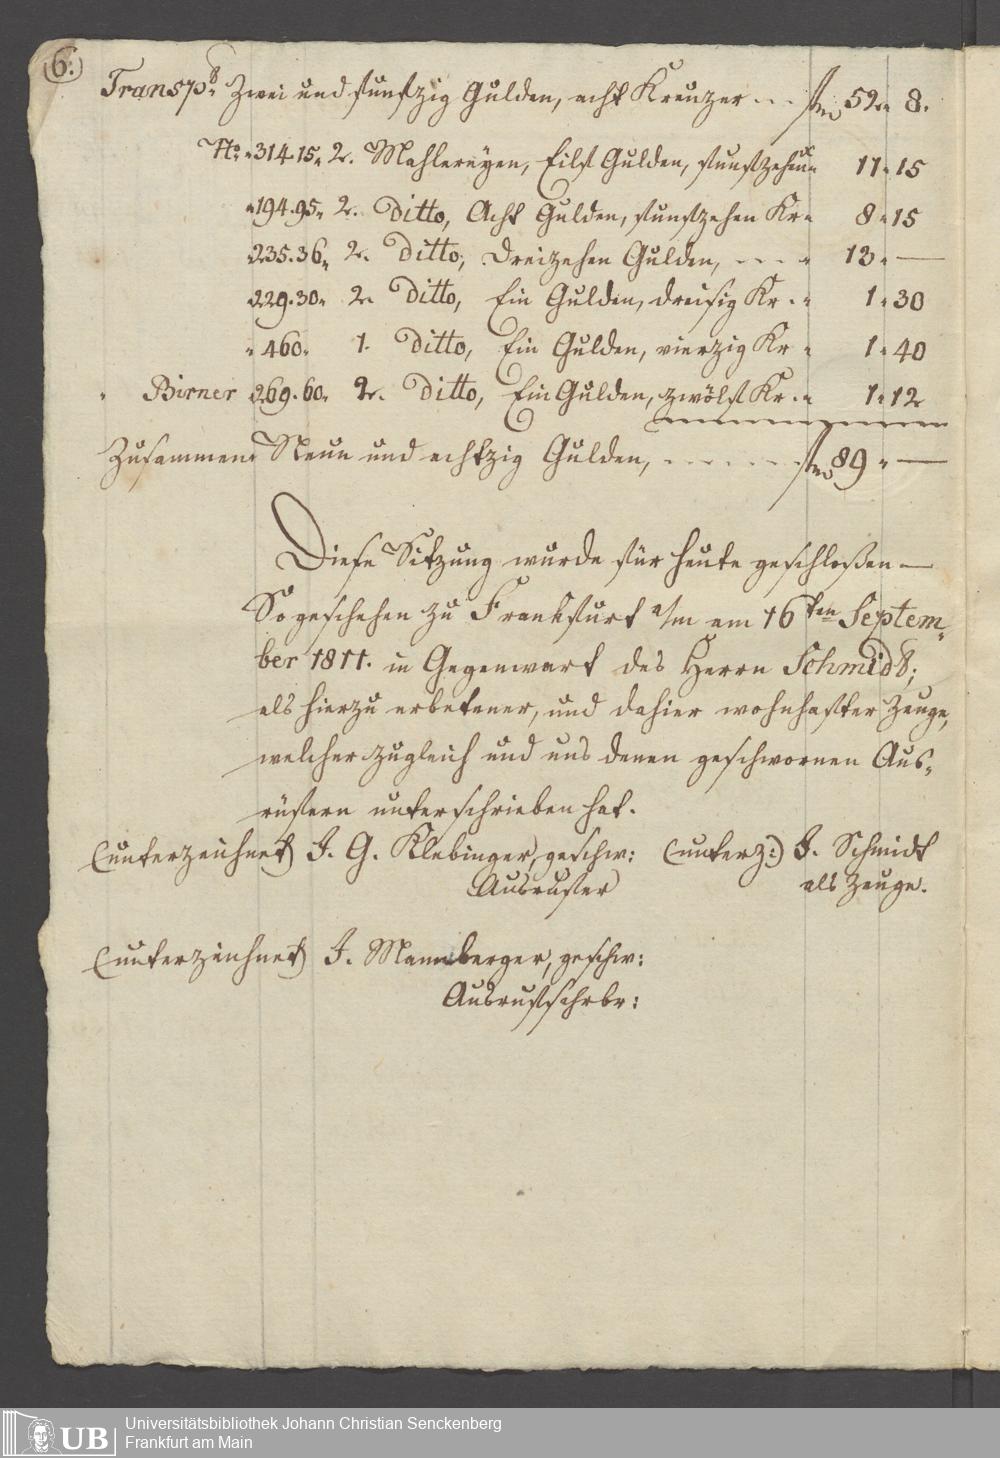 6.
Transpt. Zwei und funfzig Gulden, acht Kreuzer --- fl 52 " 8.
No. " 314.15 " 2. Mahlereÿen, Eilf Gulden, funfzehn x " 11 " 15
" 194.95 " 2. ditto, Acht Gulden, funfzehen Kr " 8 " 15
235.36 " 2. ditto, Dreizehen Gulden, --- " 13 " —
229.30 " 2. ditto, Ein Gulden, dreisig Kr . " 1 " 30
" 460 " 1. ditto, Ein Gulden, vierzig Kr " 1 " 40
" Birner 269.60 " 2. ditto, Ein Gulden, zwölf Kr . " 1 " 12
Zusammen Neun und achtzig Gulden, --- fl 89 " —
Diese Sitzung wurde für heute geschloßen —
So geschehen zu Frankfurt a/m am 16ten Septem-
ber 1811. in Gegenwart des Herrn Schmidt;
als hierzu erbetener, und dahier wohnhafter Zeuge,
welcher zugleich und uns denen geschwornen Aus-
rüfern unterschrieben hat.
(unterzeichnet) J. G. Klebinger, geschw: (unterz:) J. Schmidt
Ausrufer als Zeuge.
(unterzeichnet) J. Mannberger, geschw:
Ausrufschrbr:
UB Universitätsbibliothek Johann Christian Senckenberg
Frankfurt am Main